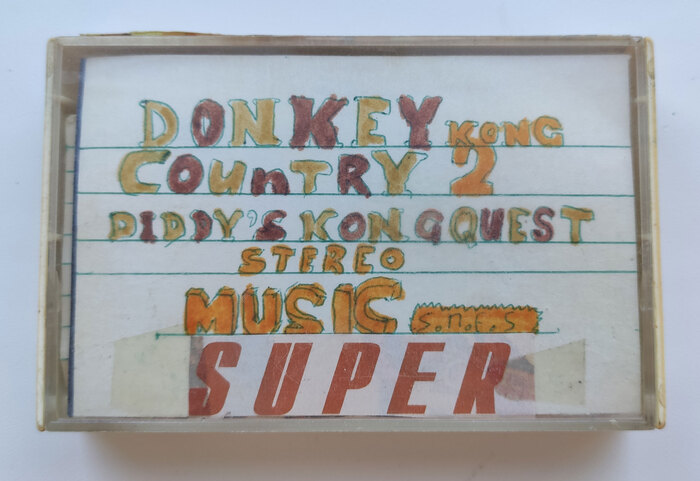 DONKEY KONG
COUnTRY 2
DIDDY'S KONG QUEST
STEREO
MUSIC S.n.E.S
SUPER